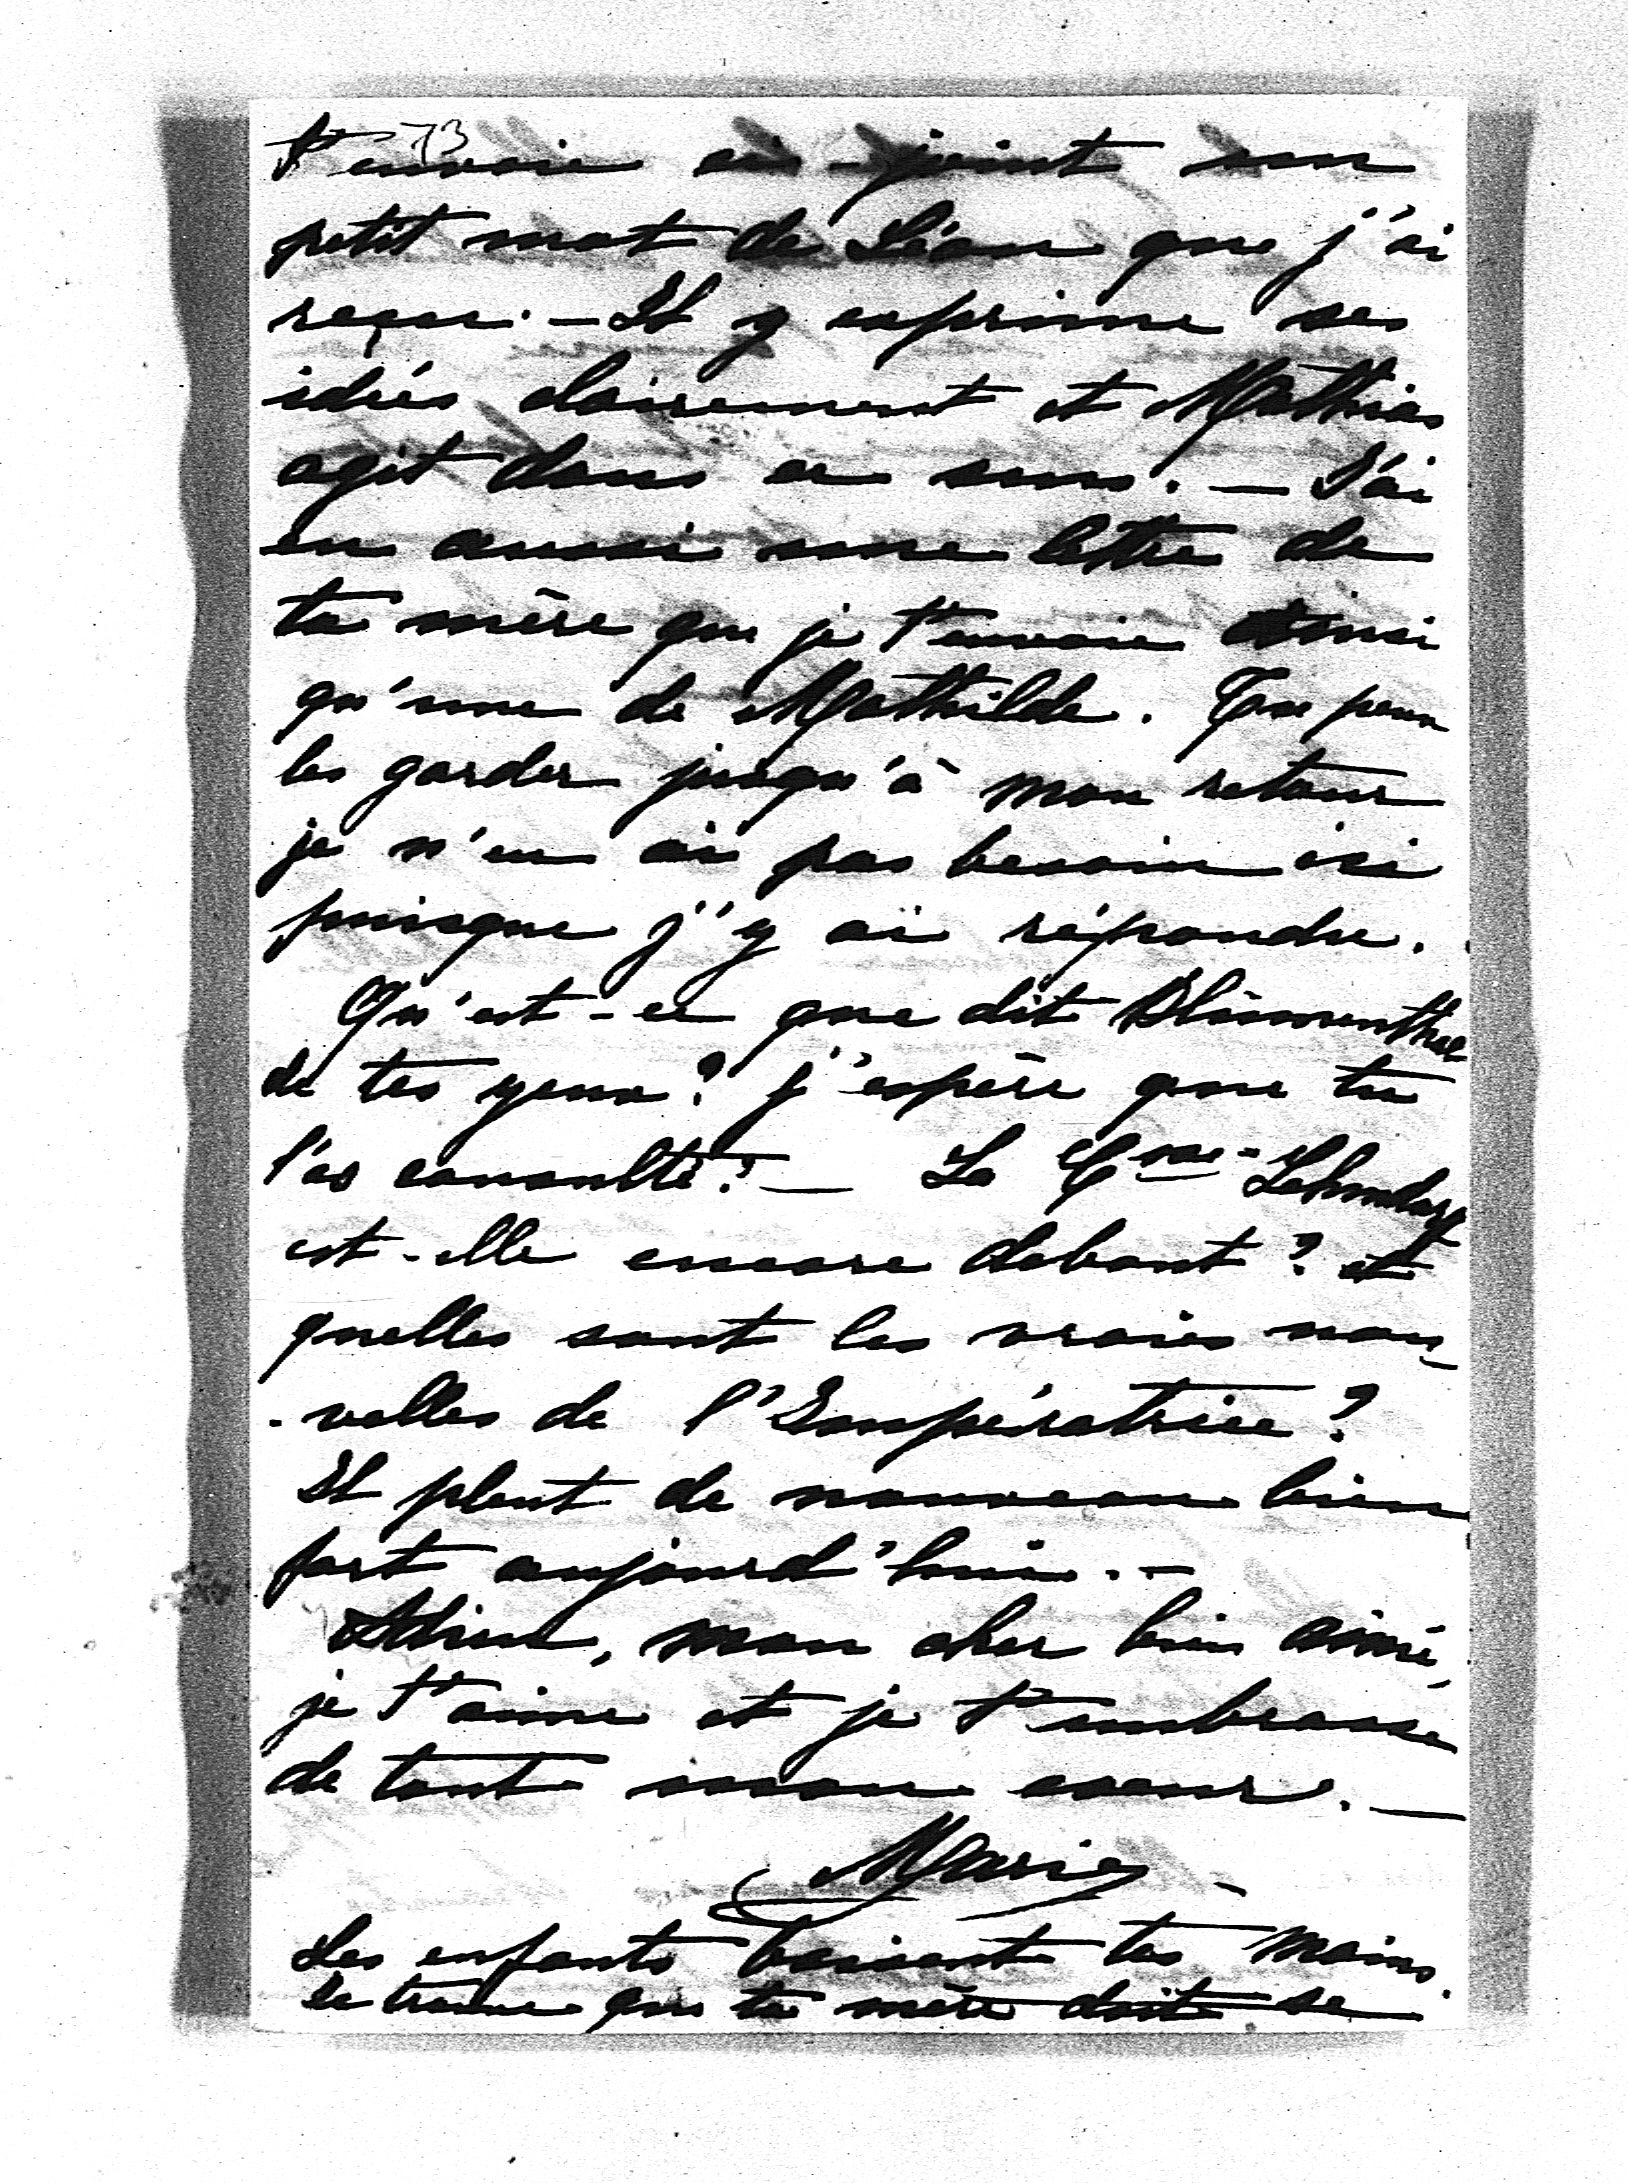 73
t'envoie ci-joint un
petit mot de Léon que j'ai
reçu. — Il y exprime ses
idées clairement et Mathias
agit dans ce sens. — J'ai
eu aussi une lettre de
ta mère que je t'envoie ainsi
qu'une de Mathilde. Tu peux
les garder jusqu'à mon retour
je n'en ai pas besoin ici
puisque j'y ai répondu.
Qu'est-ce que dit Blumenthal
de tes yeux? j'espère que tu
l'as consulté? — La
est-elle encore debout? et
quelles sont les vraies nou-
-velles de l'Impératrice?
Il pleut de nouveau bien
fort aujourd'hui. —
Adieu, mon cher bien aimé,
je t'aime et je t'embrasse
de tout mon coeur. —
Marie
Les enfants baisent tes mains.
Je trouve que ta mère doit se